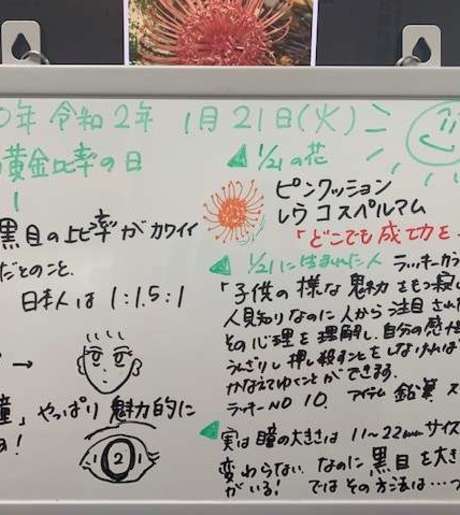 0年 令和2年 1月21日(火)
黄金比率の日
1
黒目の比率がカワイイ
だとのこと.
日本人は 1:1.5:1
→
瞳」、やっぱり 魅力的に
1 2 1
1/21の花
ピンクッション
レウコスペルマム
「どこでも成功を
1/21に生まれた人 ラッキーカラ
「子供の様な魅力をもつ寂し
人見知りなのに人から注目され
その心理を理解し、自分の感
うんざりし押し殺すことをしなければ
かなえてゆくことができます.
ラッキーNO 10. アイテム 鉛筆
実は瞳の大きさは 11〜22mmサイズ
変わらない なのに 黒目を大き
がいる! ではその方法は…